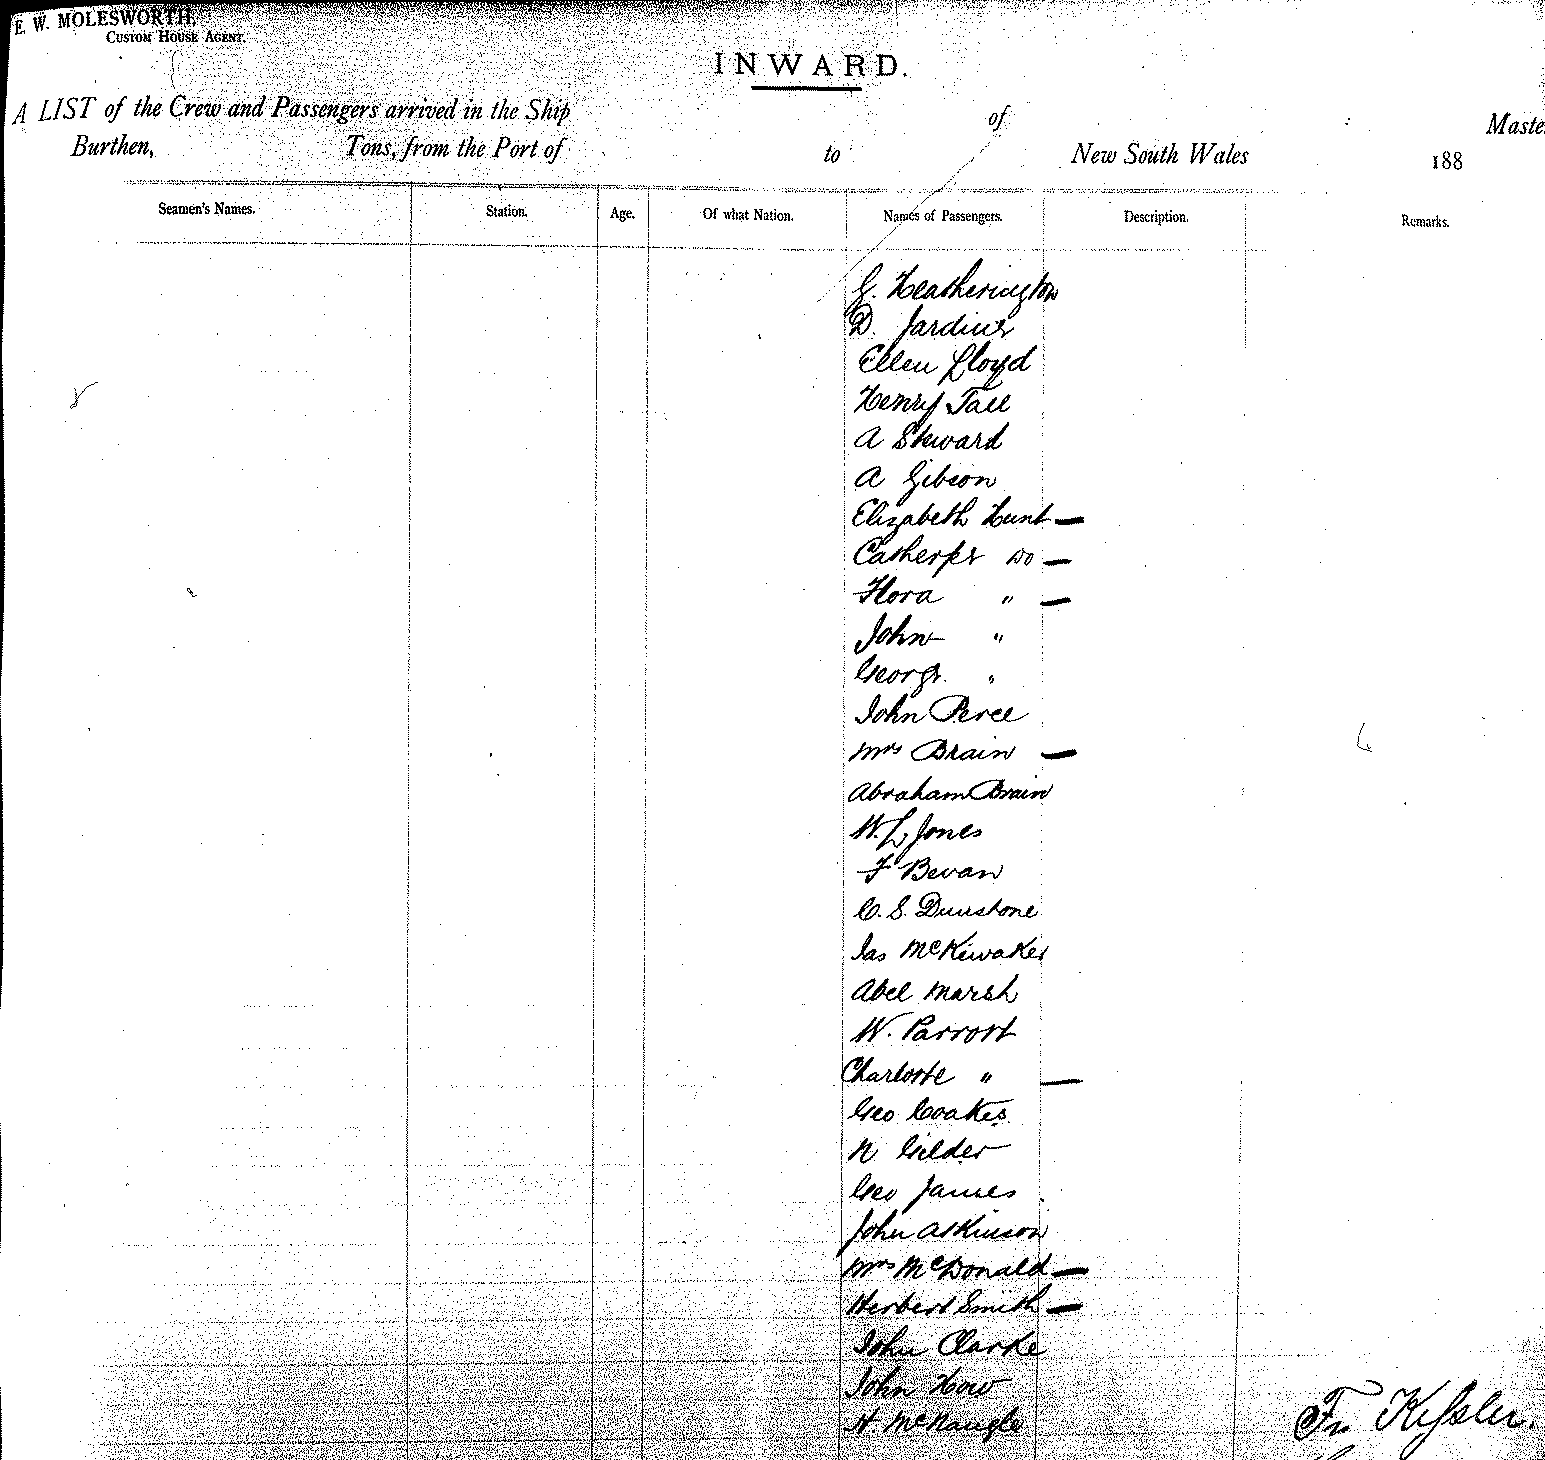 E. W. MOLESWORTH,
CUSTOM HOUSE AGENT.
INWARD.
A LIST of the Crew and Passengers arrived in the Ship of Maste
Burthen, Tons, from the Port of to New South Wales 188
Seamen's Names. Station. Age. Of what Nation. Names of Passengers. Description. Remarks.
G. Heatherington
D. Jardine
Ellen Lloyd
Henry Tall
A Steward
A Gibson
Elizabeth Hunt —
Do —
Flora " —
John "
George "
John Perce
Mrs Brain —
Abraham Brain
W. L. Jones
F Bevan
C. S. Dunstone
Jas
Abel Marsh
W. Parrott
Charlotte " —
Geo Coakes
N Gilder
Geo James
John Atkinson
Mrs McDonald —
Herbert Smith —
John Clarke
John How
McNaugle
Fr Kessler.